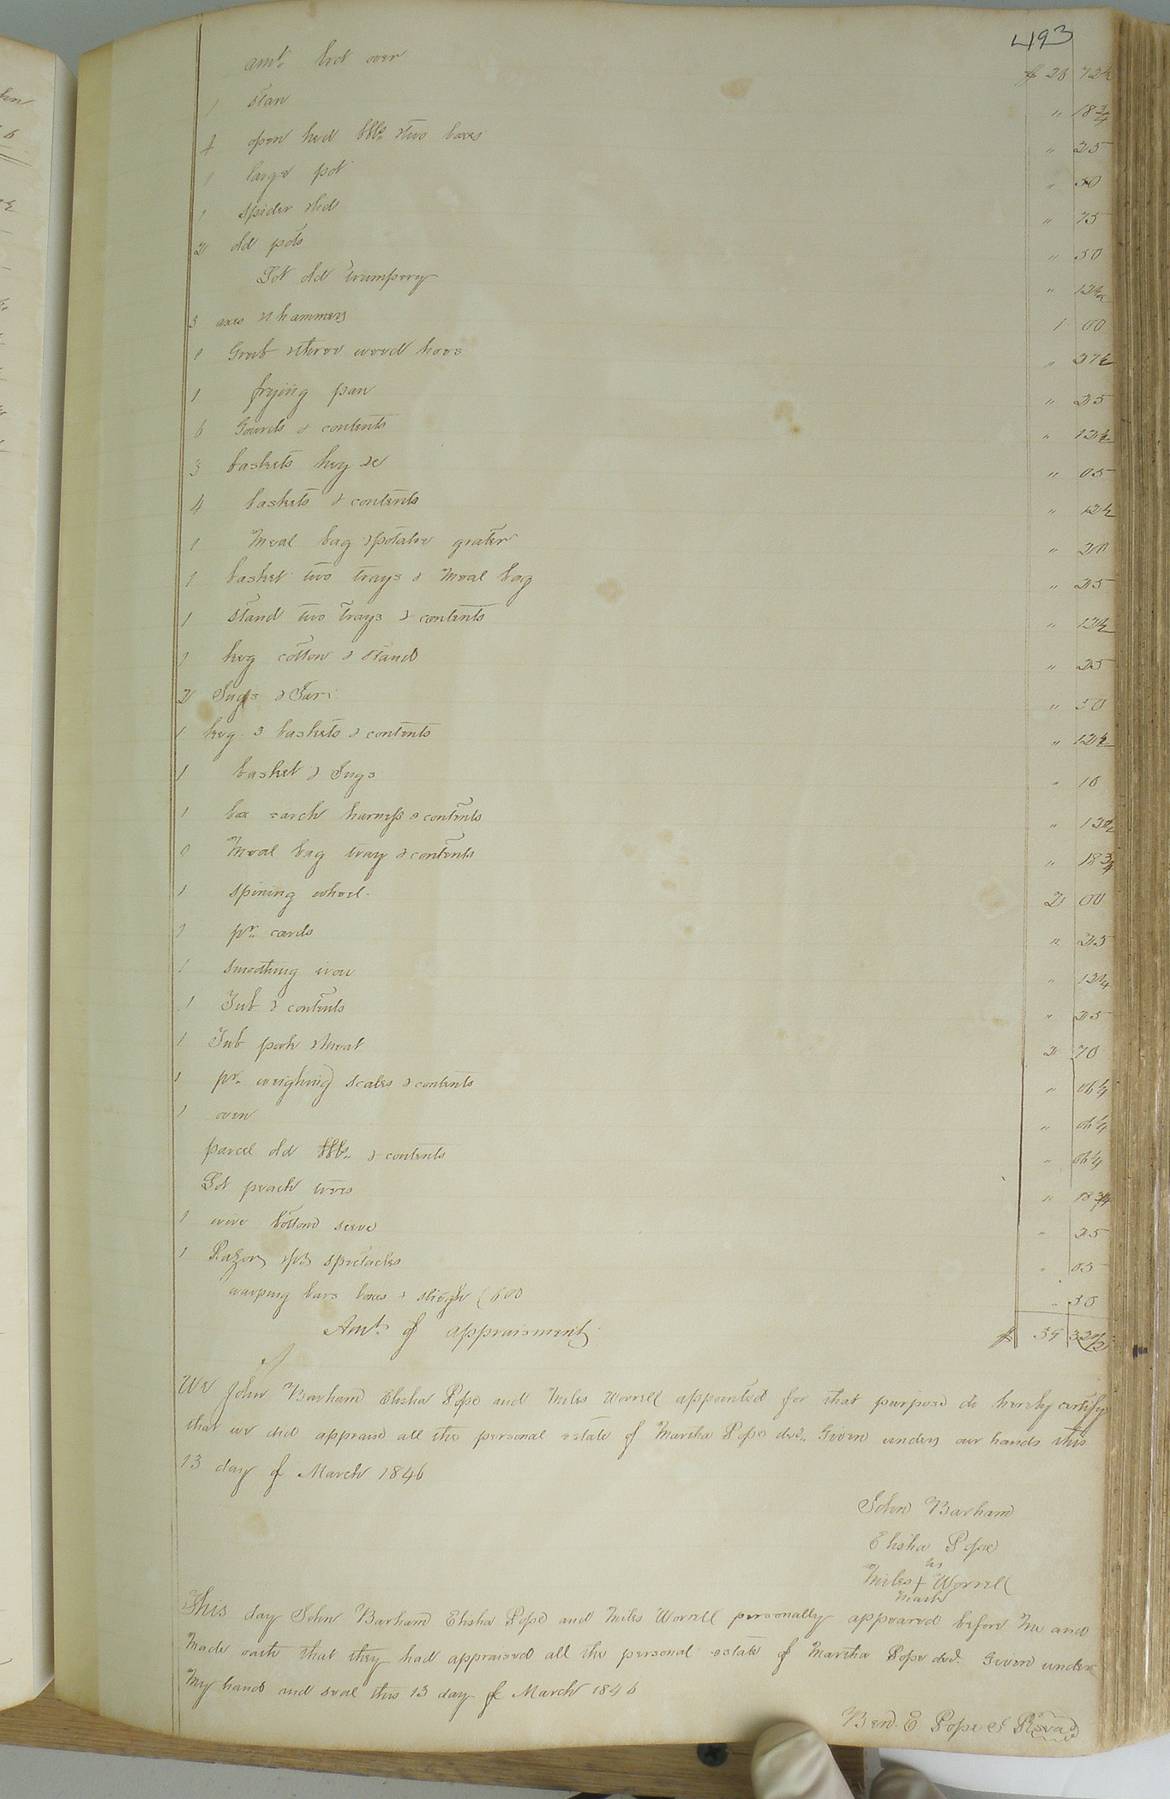 493
amt. brot over $ 28 72½
1 stan " 18¾
1 open hed bbl. & two boxes " 25
1 large pot " 50
1 spider & lid " 75
2 old pots " 50
Lot old trumpery " 12½
3 axes & hammers 1 00
1 Grub & three weed hoes " 37½
1 frying pan " 25
6 Gourds & contents " 12½
3 baskets keg &c " 05
4 baskets & contents " 12½
1 Meal bag & potatoe grater " 20
1 basket two trays & Meal bag " 25
1 stand two trays & contents " 12½
1 keg cotton & stand " 25
2 Jugs & Jar " 50
1 keg 3 baskets & contents " 12½
1 basket & Jugs " 10
1 harness & contents " 12½
Meal bag tray & contents " 18¾
1 spining wheel 2 00
1 pr. cards " 25
1 smothing iron " 12½
1 Tub & contents " 25
1 Tub pork & meat 2 70
1 pr. weighing scales & contents " 06¼
1 oven " 06¼
parcel old bbls. & contents " 06¼
Lot peach trees " 18¾
1 wire bottom seeve " 25
1 Razor & pr spectacles " 05
warping bars boxes & sleigh " 50
Amt. of appraisment $ 39 32½
We John Barham Elisha Pope and Miles Worrell appointed for that purpose do hereby certify
that we did appraise all the personal estate of Martha Pope decd. Given under our hands this
13 day of March 1846
John Barham
Elisha Pope
his
Miles + Worrell
mark
This day John Barham Elisha Pope and Miles Worrell personally appeared before me and
Made oath that they had appraised all the personal estate of Martha Pope decd. Given under
My hand and seal this 13 day of March 1846
Ben. E Pope J P